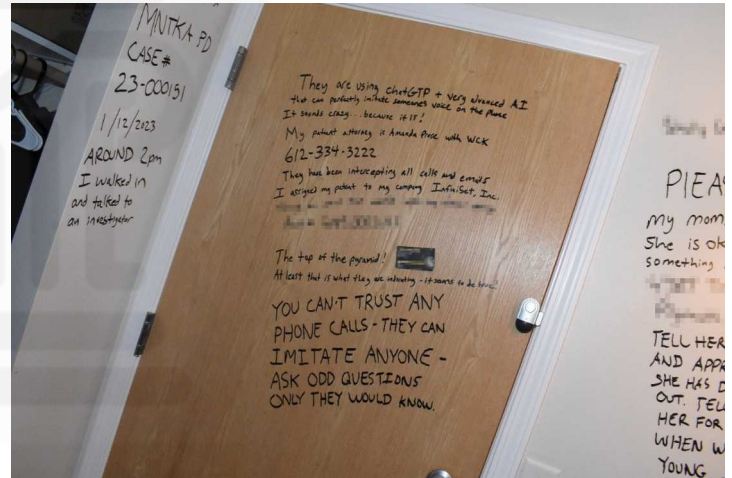 MNTKA PD
CASE #
23-000151
1/12/2023
AROUND 2pm
I walked in
and talked to
an investigator
They are using ChatGTP + very advanced AI
that can perfectly imitate someone's voice on the phone
It sounds crazy... because it is!
My patent attorney is Amanda Prose with WCK
612-334-3222
They have been intercepting all calls and emails
I assigned my patent to my company InfiniSet, Inc.
The top of the pyramid!
At least that is what they are indicating - it seems to be
YOU CAN'T TRUST ANY
PHONE CALLS - THEY CAN
IMITATE ANYONE -
ASK ODD QUESTIONS
ONLY THEY WOULD KNOW.
PLEA
My mom
She is ok
something
TELL HER
AND APPR
SHE HAS D
OUT. TELL
HER FOR
WHEN W
YOUNG